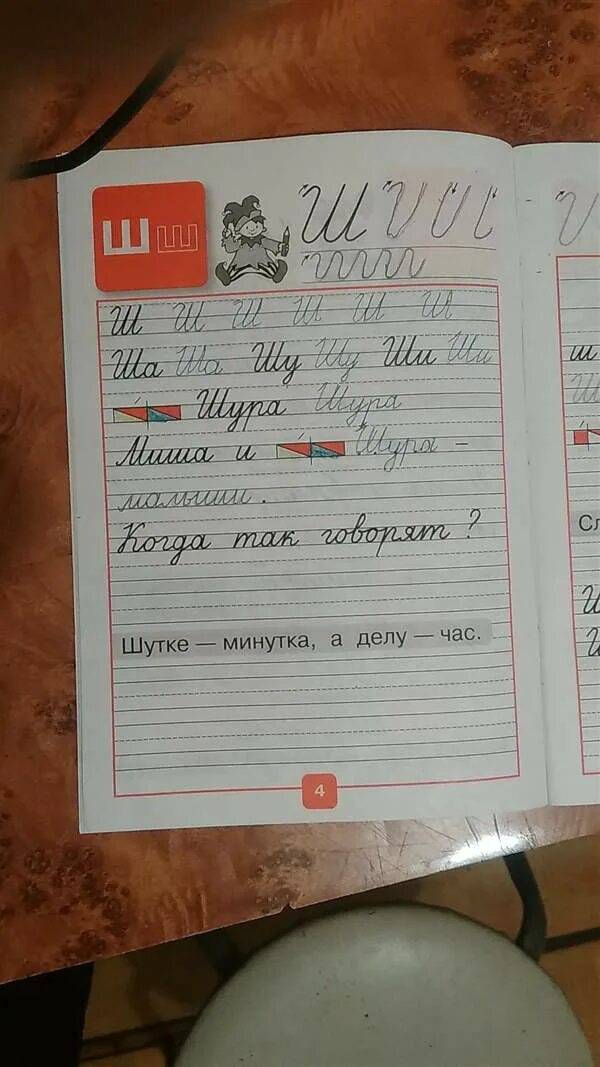 Ш ш
Ш
Ш Ш Ш Ш Ш Ш
Ша Ша Шу Шу Ши Ши
Шура Шура
Миша и Шура –
малыши.
Когда так говорят?
Шутке — минутка, а делу — час.
4
ш
Ш
Сл